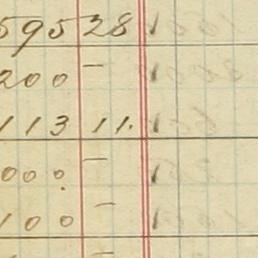 595 28
200 –
113 11.
000 –
100 –